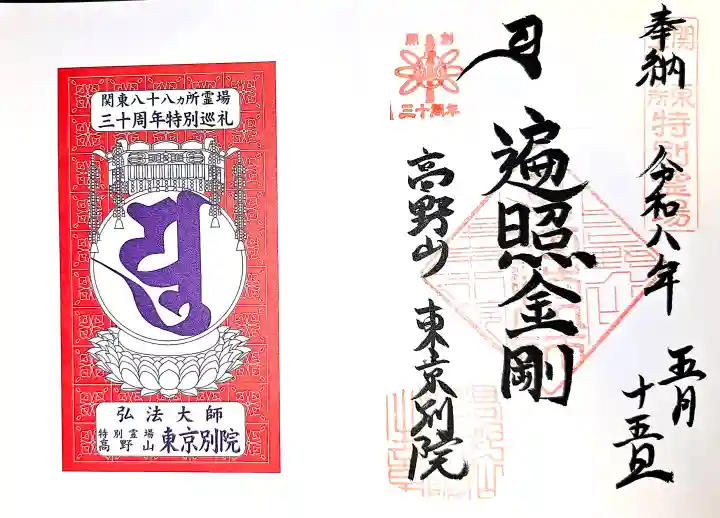 奉納
令和八年
五月
十五日
関東
特別霊場
開創
三十周年
遍照金剛
高野山
東京別院
関東八十八ヵ所霊場
三十周年特別巡礼
弘法大師
特別霊場
高野山
東京別院